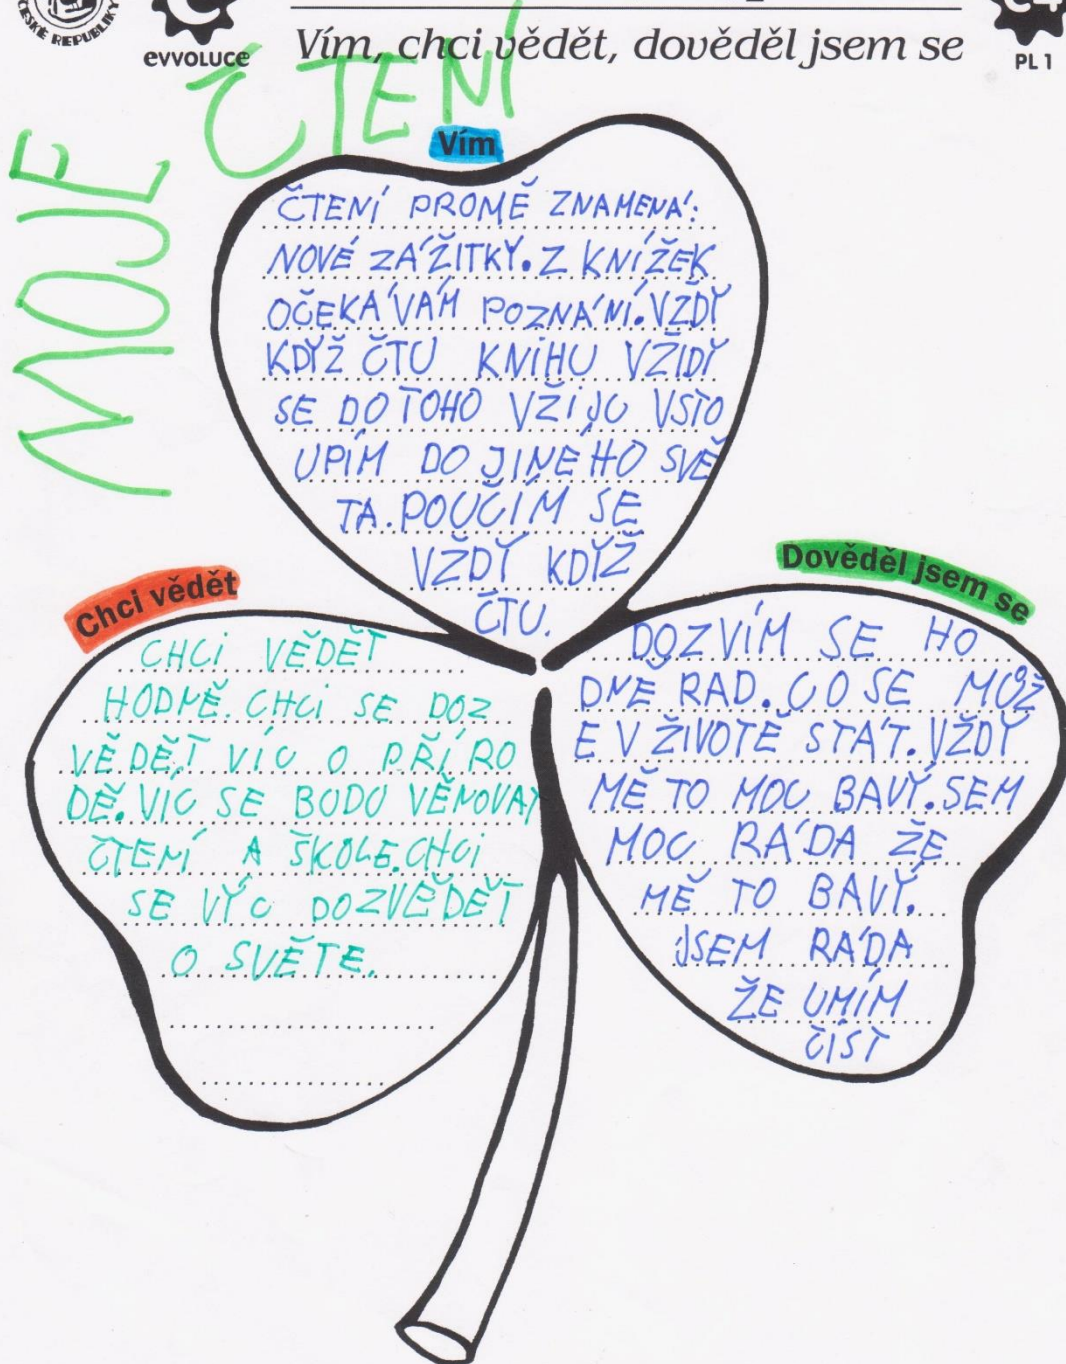 ČESKÉ REPUBLIKY
evvoluce
Vím, chci vědět, dověděl jsem se
PL 1
MOJE ČTENÍ
Vím
ČTENÍ PROMĚ ZNAMENÁ:
NOVÉ ZÁŽITKY. Z KNÍŽEK
OČEKÁVÁM POZNÁNÍ. VŽDY
KDYŽ ČTU KNIHU VŽIDY
SE DO TOHO VŽIJU VSTO
UPÍM DO JINÉHO SVĚ
TA. POUČÍM SE
VŽDY KDYŽ
ČTU.
Chci vědět
CHCI VĚDĚT
HODNĚ. CHCI SE DOZ
VĚDĚT VÍC O PŘÍRO
DĚ. VÍC SE BUDU VĚNOVAT
ČTENÍ A ŠKOLE. CHCI
SE VÝC DOZVĚDĚT
O SVĚTE.
Dověděl jsem se
DOZVÍM SE HO
DNĚ RAD. CO SE MŮŽ
E V ŽIVOTĚ STÁT. VŽDY
MĚ TO MOC BAVÝ. SEM
MOC RÁDA ŽE
MĚ TO BAVÝ.
JSEM RÁDA
ŽE UMÍM
ČÍST